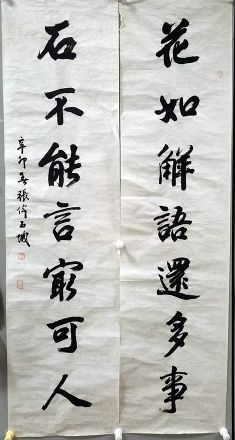 花如解語還多事
石不能言最可人
辛卯春張